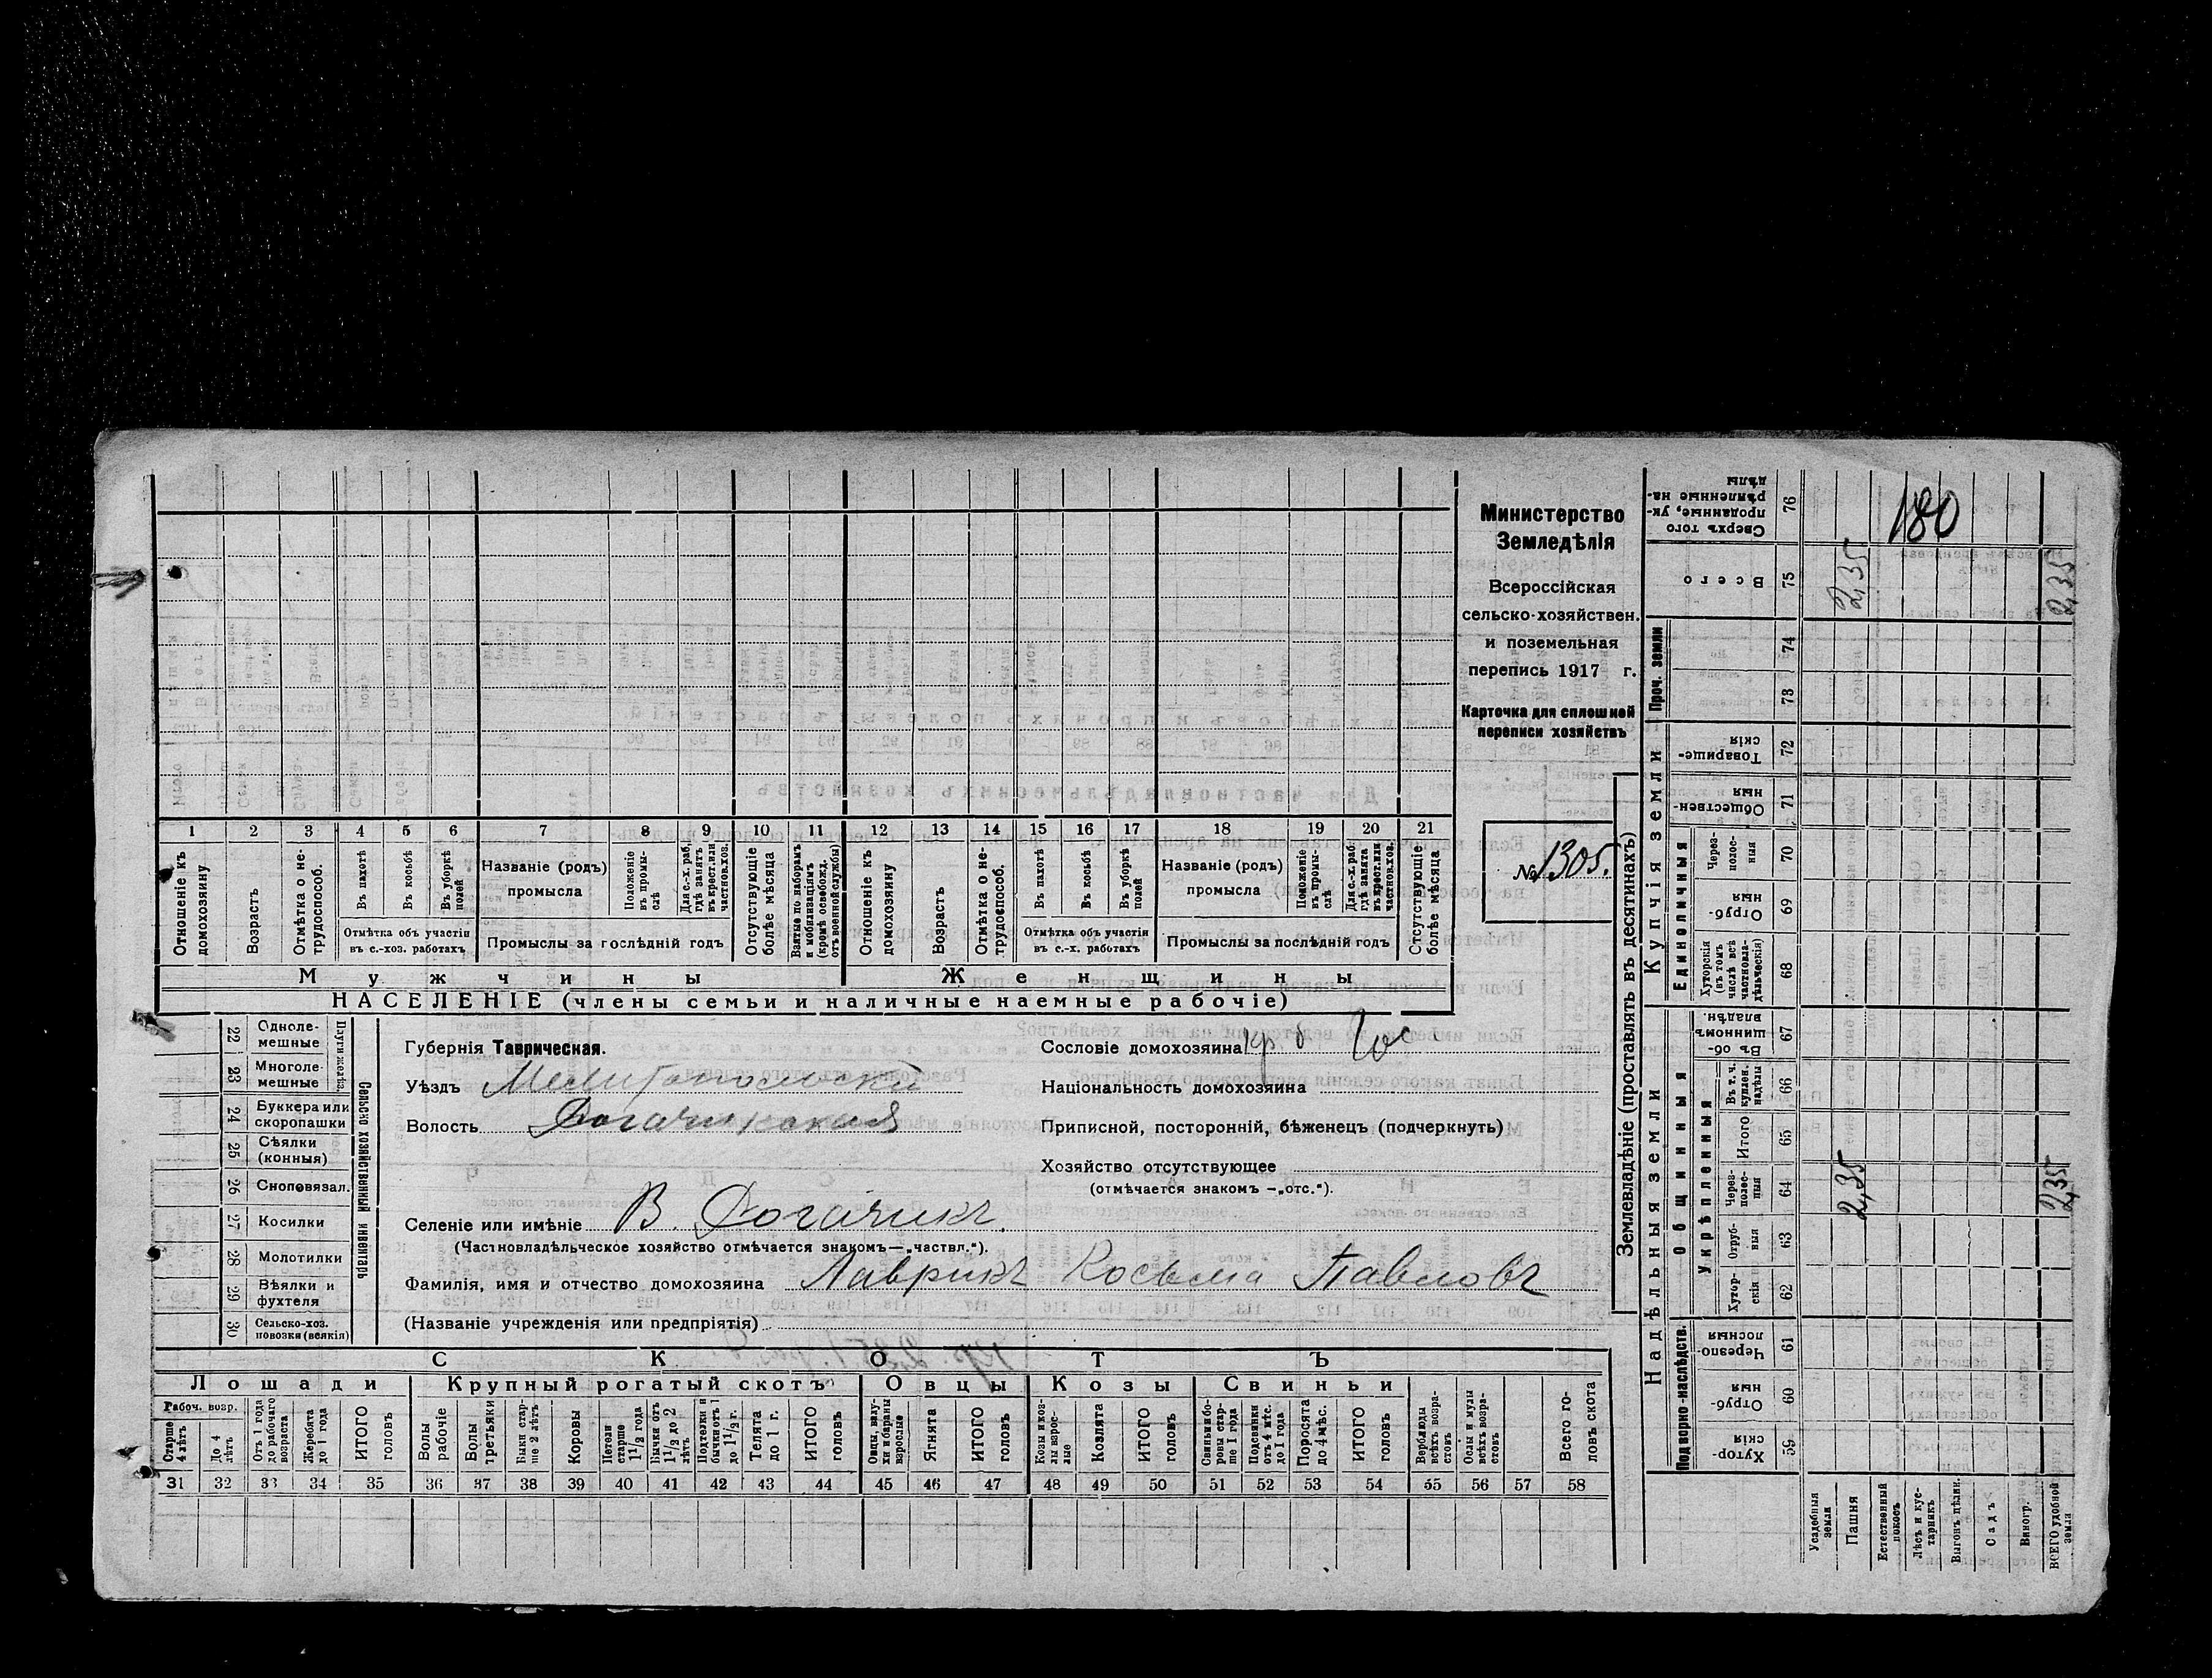 Министерство
Земледѣлія
Всероссійская
сельско-хозяйствен.
и поземельная
перепись 1917 г.
Карточка для сплошной
переписи хозяйствъ
№ 1305.
1 2 3 4 5 6 7 8 9 10 11 12 13 14 15 16 17 18 19 20 21
Отношеніе къ домохозяину
Возрастъ
Отмѣтка о не-трудоспособ.
Въ пахотѣ
Въ косьбѣ
Въ уборкѣ полей
Отмѣтка объ участіи въ с.-хоз. работахъ
Названіе (родъ) промысла
Положеніе въ промы-слѣ
Для с.-х. раб. гдѣ занятъ въ крест. или частнов. хоз.
Промыслы за послѣдній годъ
Отсутствующіе болѣе мѣсяца
Взятые по наборамъ и мобилизаціямъ (кромѣ освобожд. отъ военной службы)
Отношеніе къ домохозяину
Возрастъ
Отмѣтка о не-трудоспособ.
Въ пахотѣ
Въ косьбѣ
Въ уборкѣ полей
Отмѣтка объ участіи въ с.-х. работахъ
Названіе (родъ) промысла
Положеніе въ промы-слѣ
Для с.-х. раб. гдѣ занята въ крест. или частнов. хоз.
Промыслы за послѣдній годъ
Отсутствующіе болѣе мѣсяца
Мужчины Женщины
НАСЕЛЕНІЕ (члены семьи и наличные наемные рабочіе)
Сельско хозяйственный инвентарь
Плуги желѣз.
22 Однолемешные
23 Многолемешные
24 Буккера или скоропашки
25 Сѣялки (конныя)
26 Сноповязал.
27 Косилки
28 Молотилки
29 Вѣялки и фухтеля
30 Сельско-хоз. повозки (всякія)
Губернія Таврическая.
Уѣздъ Мелитопольскій
Волость Рогачикская
Селеніе или имѣніе В. Рогачикъ.
(Частновладѣльческое хозяйство отмѣчается знакомъ—„частвл.“).
Фамилія, имя и отчество домохозяина Лаврикъ Косьма Павловъ
(Названіе учрежденія или предпріятія)
Сословіе домохозяина кр б гос
Національность домохозяина
Приписной, посторонній, бѣженецъ (подчеркнуть)
Хозяйство отсутствующее
(отмѣчается знакомъ —„отс.“).
СКОТЪ
Лошади Крупный рогатый скотъ Овцы Козы Свиньи
Рабоч. возр.
Старше 4 лѣтъ
До 4 лѣтъ
Отъ 1 года до рабочаго возраста
Жеребята до 1 года
ИТОГО головъ
Волы рабочіе
Волы третьяки
Быки стар-ше 2 лѣтъ
Коровы
Нетели старше 1 1/2 года
Бычки отъ 1 1/2 до 2 лѣтъ
Подтелки и бычки отъ 1 до 1 1/2 г.
Телята до 1 г.
ИТОГО головъ
Овцы, валу-хи и бараны взрослые
Ягнята
ИТОГО головъ
Козы и коз-лы взрос-лые
Козлята
ИТОГО головъ
Свиньи и бо-ровы стар-ше 1 года
Подсвинки отъ 4 мѣс. до 1 года
Поросята до 4 мѣс.
ИТОГО головъ
Верблюды всѣхъ возра-стовъ
Ослы и мулы всѣхъ возра-стовъ
Всего го-ловъ скота
31 32 33 34 35 36 37 38 39 40 41 42 43 44 45 46 47 48 49 50 51 52 53 54 55 56 57 58
Землевладѣніе (проставлять въ десятинахъ)
Надѣльныя земли Купчія земли Проч. земли
Подворно-наслѣдств.
Общинныя
Укрѣпленныя
Единоличныя
59 Хутор-скія
60 Отруб-ныя
61 Черезпо-лосныя
62 Хутор-скія
63 Отруб-ныя
64 Через-полос-ныя
65 Итого
66 Въ т. ч. куплен. надѣлы
67 Въ об-щинномъ владѣн.
68 Хуторскія (въ томъ числѣ всѣ частновла-дѣльческія)
69 Отруб-ныя
70 Через-полос-ныя
71 Обществен-ныя
72 Товарище-скія
73
74
75 Всего
76 Сверхъ того проданные, ук-рѣпленные на-дѣлы
Усадебныя земли
Пашня
Естественный покосъ
Лѣсъ и кус-тарникъ
Выгонъ цѣлик.
Садъ
Виногр.
ВСЕГО удобной земли
2,35 2,35
2,35 2,35
180